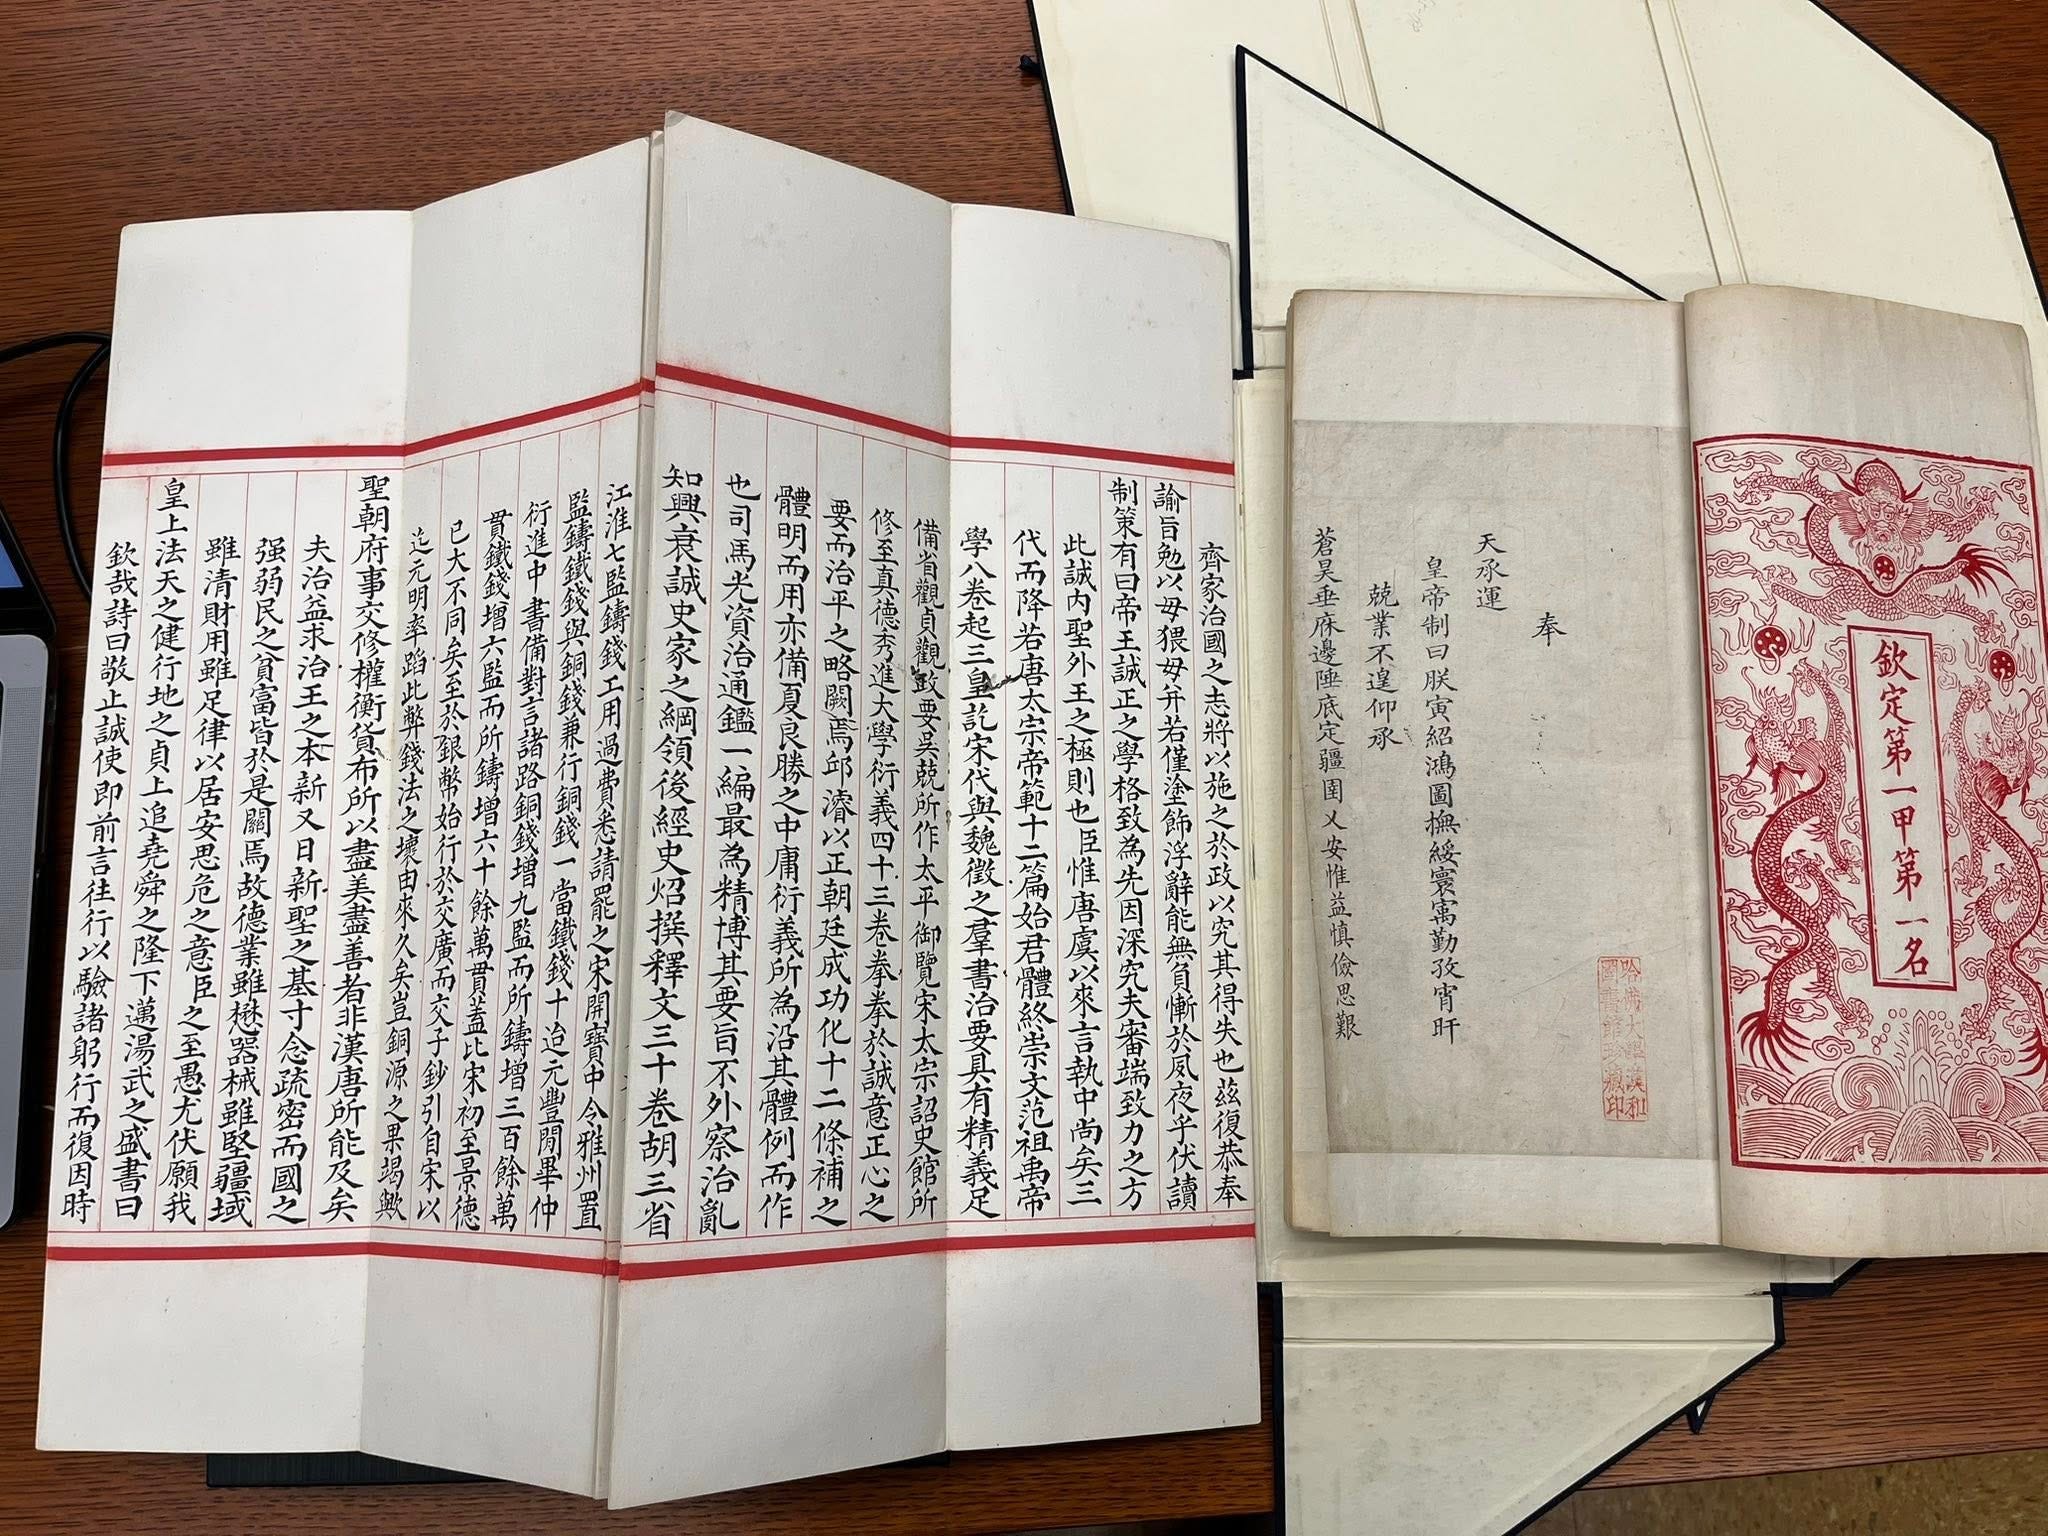 欽定第一甲第一名
哈佛大學漢和
圖書館珍藏印
奉
天承運
皇帝制曰朕寅紹鴻圖撫綏寰寓勤孜宵旰
兢業不遑仰承
蒼昊垂庥邊陲底定疆圉乂安惟益慎儉思艱
齊家治國之志將以施之於政以究其得失也茲復恭奉
諭旨勉以毋猥毋并若僅塗飾浮辭能無負慚於夙夜乎伏讀
制策有曰帝王誠正之學格致為先因深究夫審端致力之方
此誠內聖外王之極則也臣惟唐虞以來言執中尚矣三
代而降若唐太宗帝範十二篇始君體終崇文范祖禹帝
學八卷起三皇訖宋代與魏徵之羣書治要具有精義足
備省觀貞觀政要吳兢所作太平御覽宋太宗詔史館所
修至真德秀進大學衍義四十三卷拳拳於誠意正心之
要而治平之略闕焉邱濬以正朝廷成功化十二條補之
體明而用亦備夏良勝之中庸衍義所為沿其體例而作
也司馬光資治通鑑一編最為精博其要旨不外察治亂
知興衰誠史家之綱領後經史炤撰釋文三十卷胡三省
江淮七監鑄錢工用過費悉請罷之宋開寶中令雅州置
監鑄鐵錢與銅錢兼行銅錢一當鐵錢十迨元豐閒畢仲
衍進中書備對言諸路銅錢增九監而所鑄增三百餘萬
貫鐵錢增六監而所鑄增六十餘萬貫蓋比宋初至景德
已大不同矣至於銀幣始行於交廣而交子鈔引自宋以
迄元明率蹈此弊錢法之壞由來久矣豈銅源之果竭歟
聖朝府事交修權衡貨布所以盡美盡善者非漢唐所能及矣
夫治益求治王之本新又日新聖之基寸念疏密而國之
强弱民之貧富皆於是關焉故德業雖懋器械雖堅疆域
雖清財用雖足律以居安思危之意臣之至愚尤伏願我
皇上法天之健行地之貞上追堯舜之隆下邁湯武之盛書曰
欽哉詩曰敬止誠使即前言往行以驗諸躬行而復因時